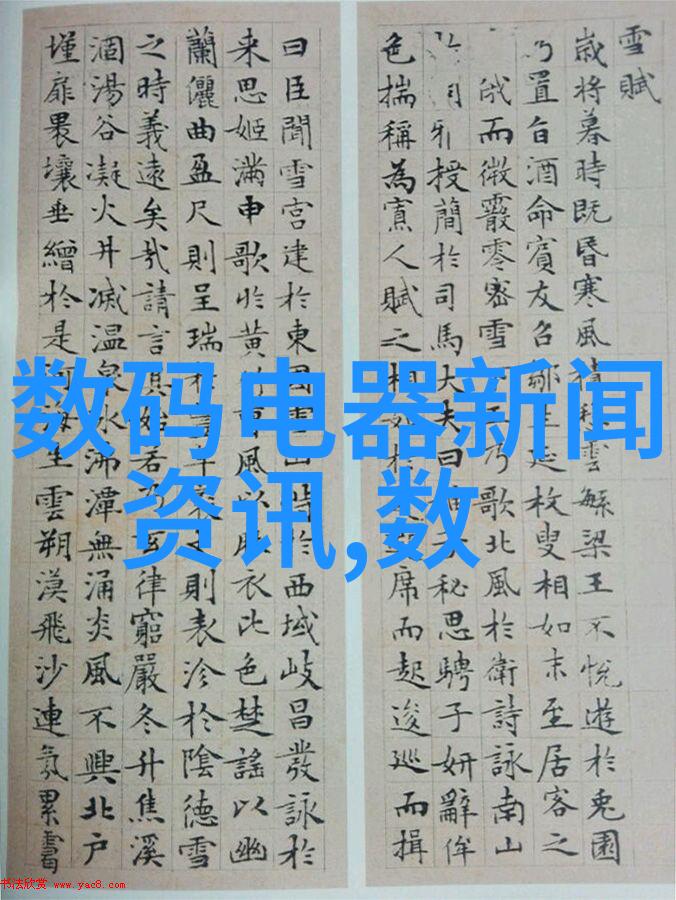 雪賦
歲將暮時既昏寒風積愁雲繁梁王不悅遊於兔園
乃置旨酒命賓友召鄒生延枚叟相如末至居客之
俄而微霰零密雪王乃歌北風於衛詩詠南山
雅授簡於司馬大夫曰抽子秘思騁子妍辭侔
色揣稱為寡人賦之相於席而起逡巡而揖
曰臣聞雪宮建於東國雪山峙於西域岐昌發詠於
來思姬滿申歌於黃竹曹風以麻衣比色楚謠以幽
蘭儷曲盈尺則呈瑞於年袤丈則表沴於陰德雪
之時義遠矣哉請言其始若乃玄律窮嚴冬升焦溪
涸湯谷凝火井滅温泉冰沸潭無涌炎風不興北户
墐扉壤垂繒於是河海生雲朔漠飛沙連氛累靄
数码电器新闻
资讯,数
书法欣赏 www.yac8.com